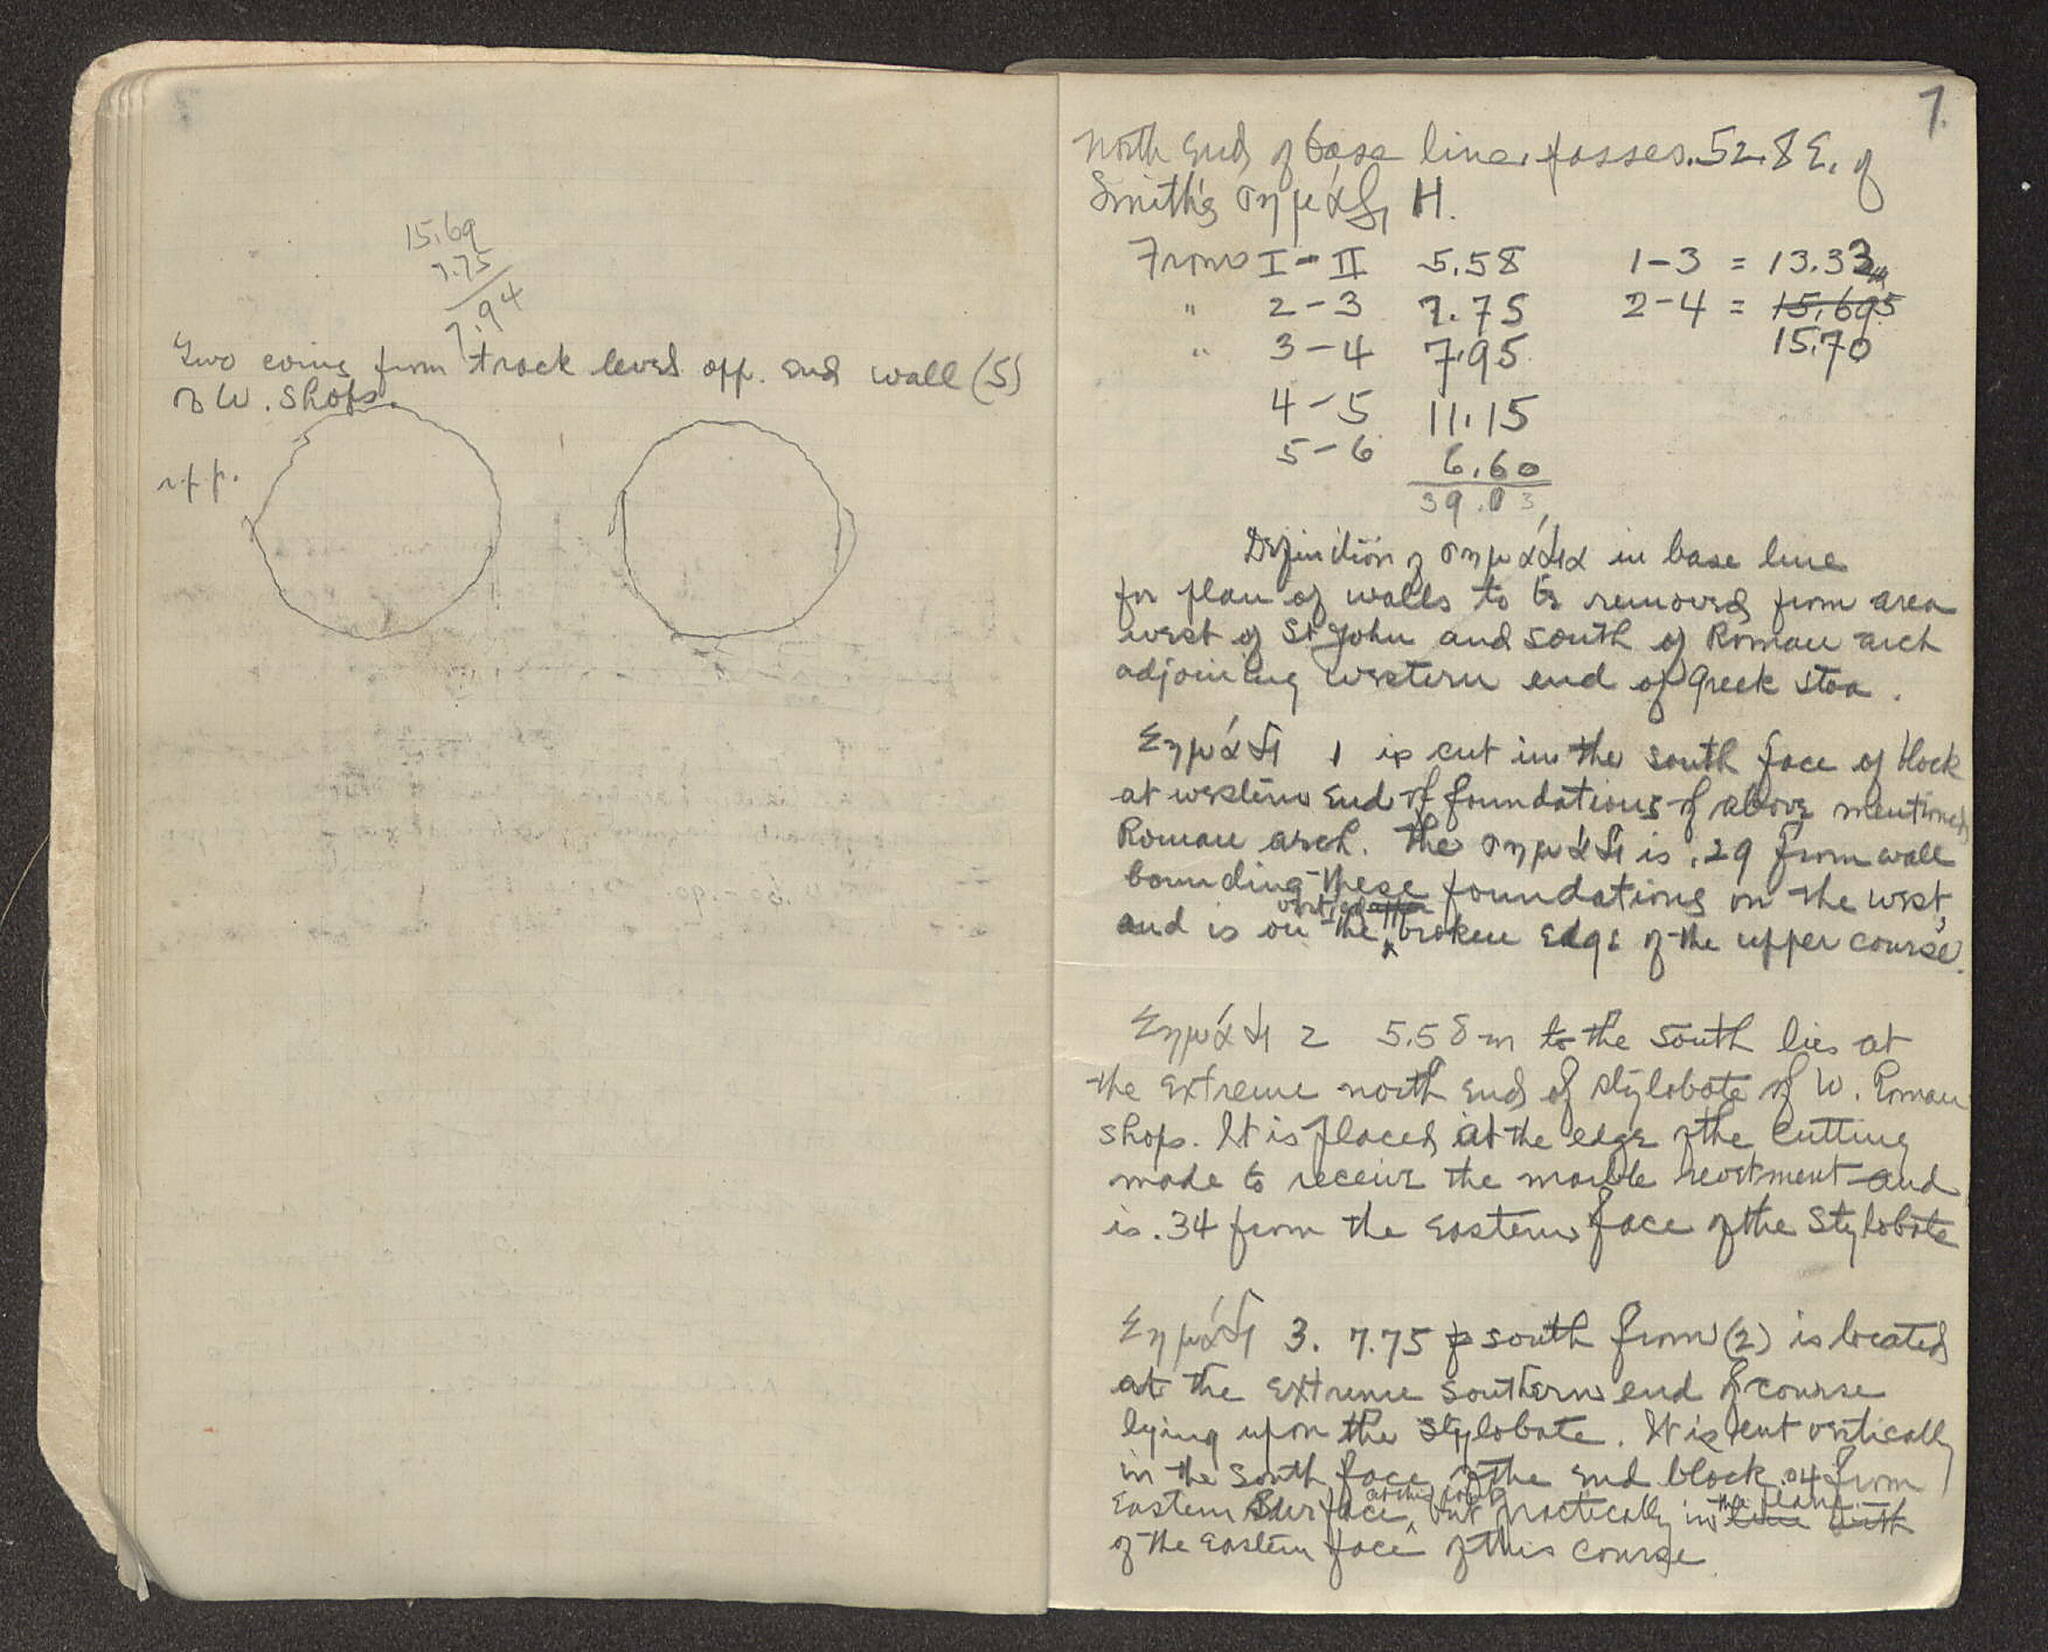 15.69
7.75
7.94
Two coins from track level opp. end wall (S)
of W. Shops.
7.
North End of base line passes .52.8 E. of
Smith's σημάδι H.
From I - II 5.58 1-3 = 13.33
" 2-3 7.75 2-4 = 15.695
" 3-4 7.95 15.70
4-5 11.15
5-6 6.60
39.03
Definition of σημάδια in base line
for plan of walls to be removed from area
west of St John and south of Roman arch
adjoining western end of Greek stoa.
Σημάδι 1 is cut in the south face of block
at western end of foundations of above mentioned
Roman arch. The σημάδι is .29 from wall
bounding these foundations on the west,
and is on the vertical broken edge of the upper course.
Σημάδι 2 5.58 m to the south lies at
the extreme north end of stylobate of W. Roman
shops. It is placed at the edge of the cutting
made to receive the marble revetment and
is .34 from the eastern face of the stylobate
Σημάδι 3. 7.75 south from (2) is located
at the extreme southern end of course
lying upon the stylobate. It is cut vertically
in the south face of the end block .04 from
Eastern surface at this point, but practically in the plane line with
of the eastern face of this course